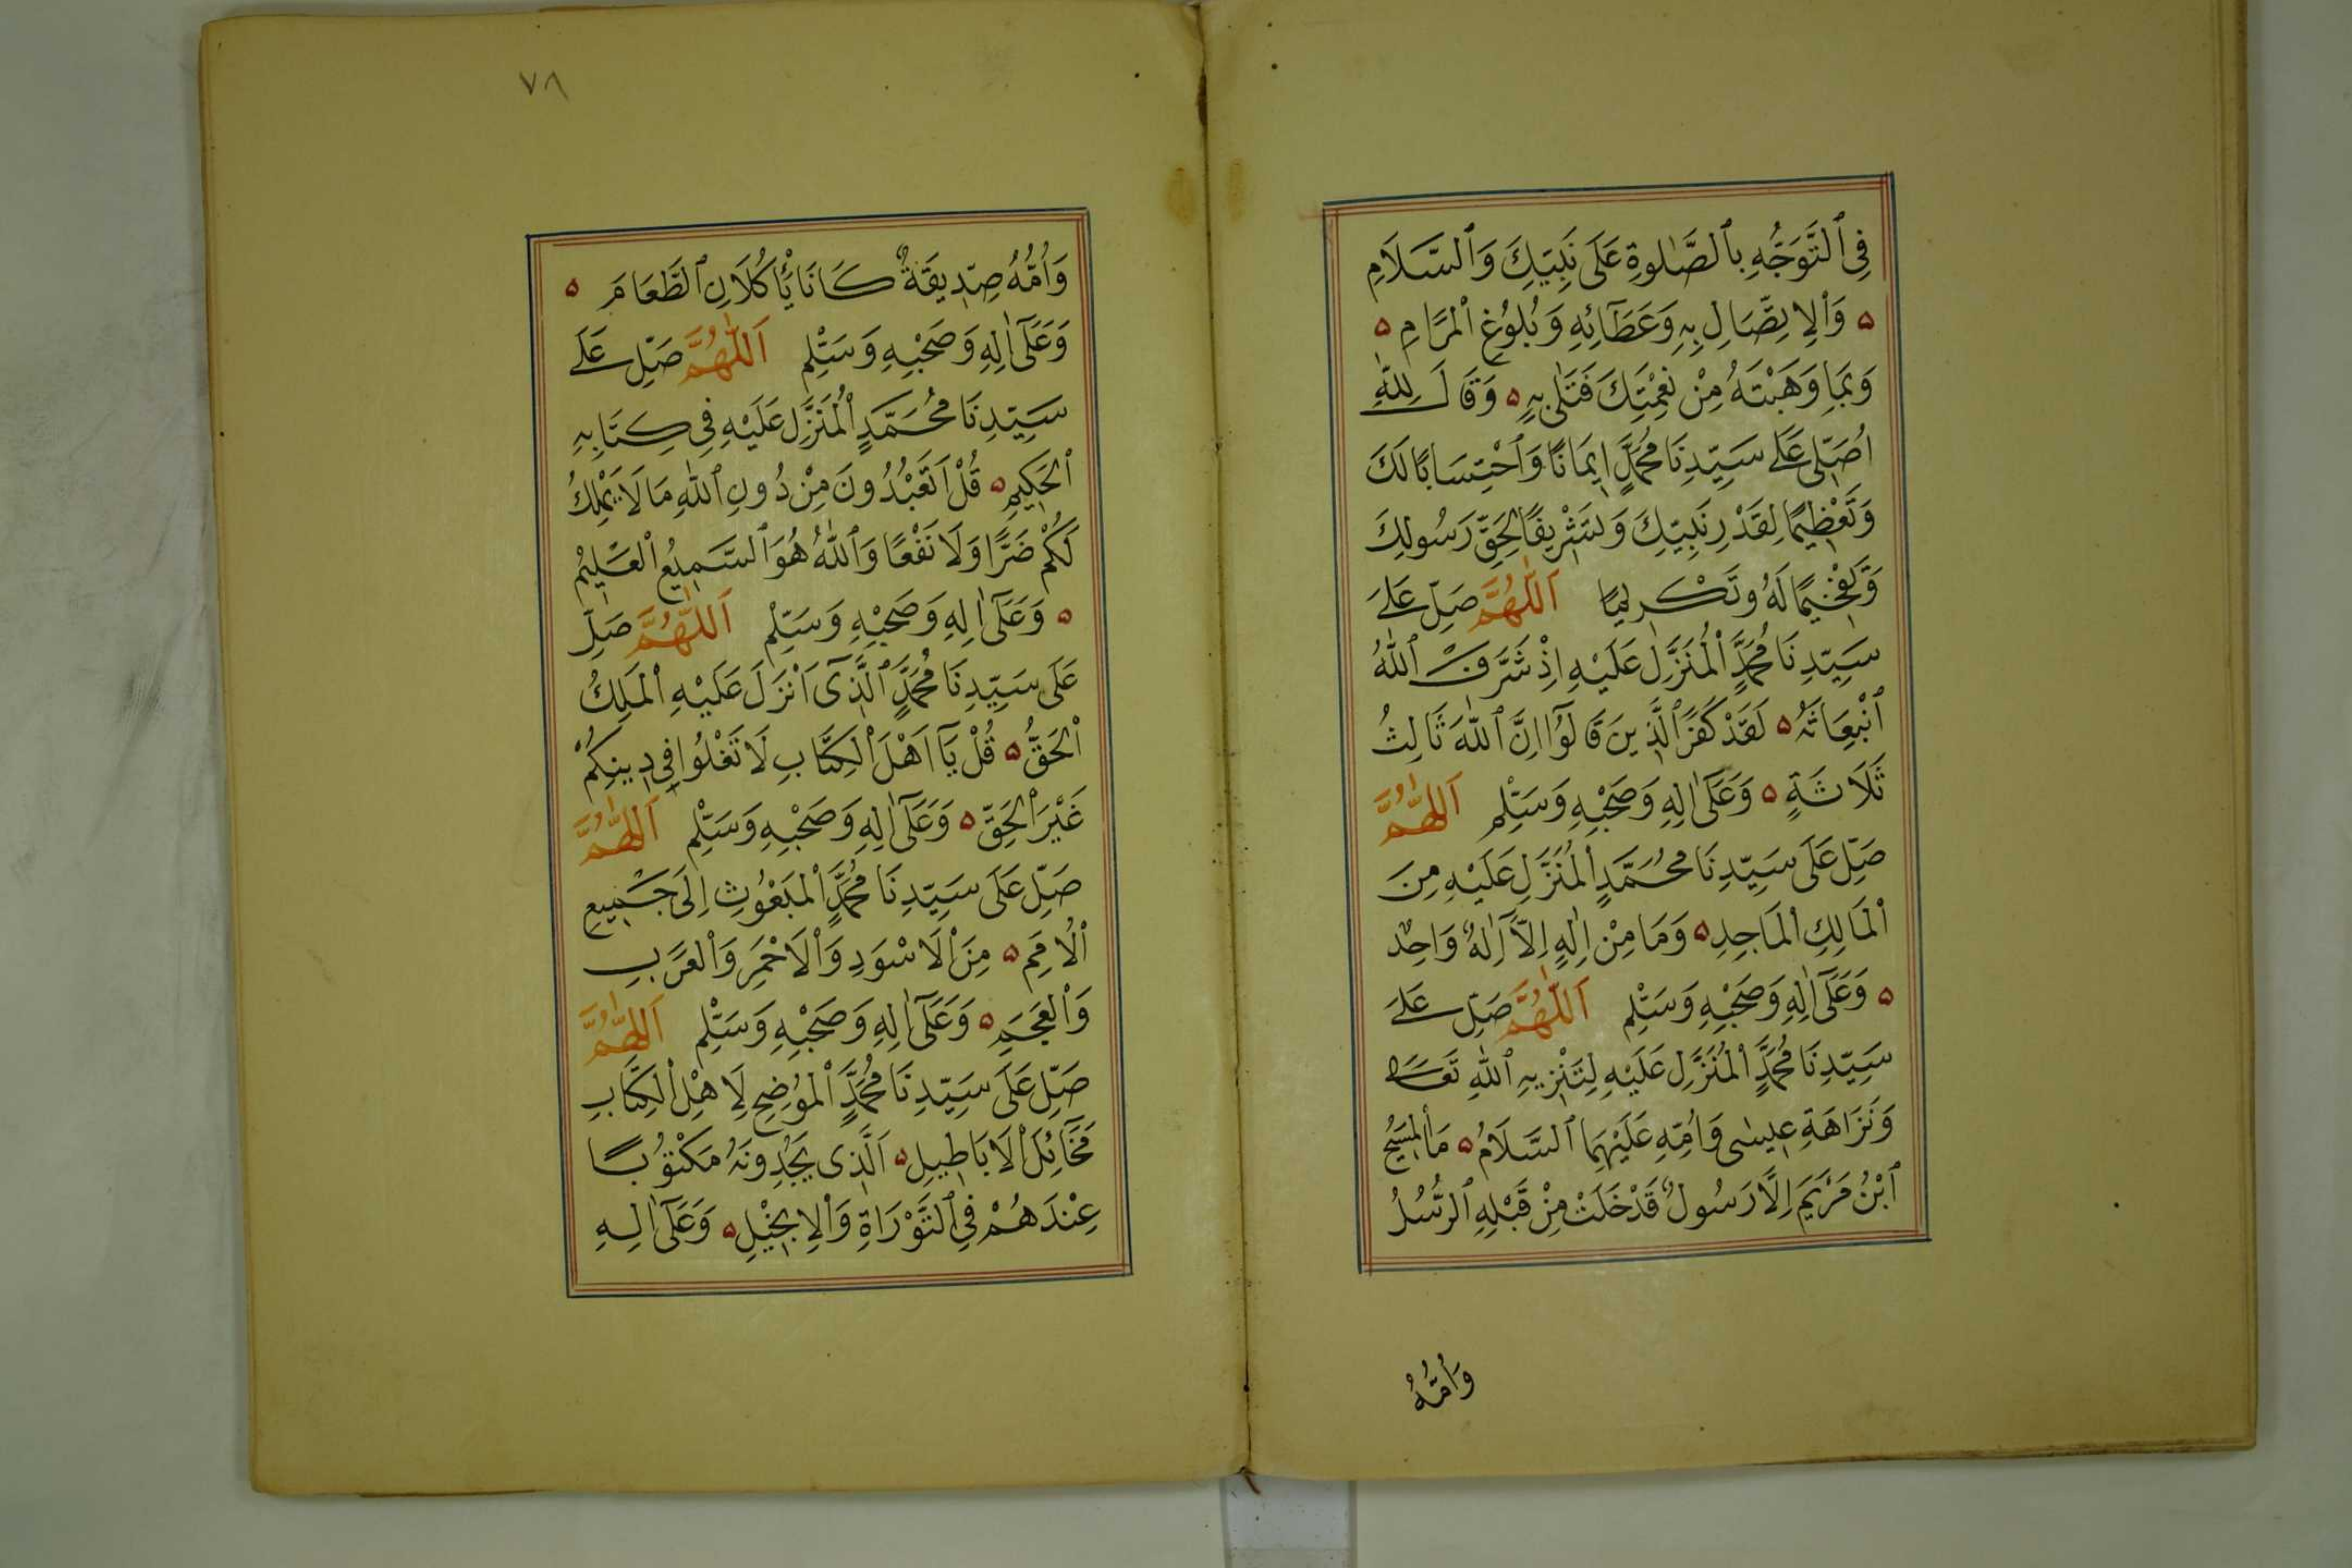 فِى ٱلتَّوَجُّهِ بِٱلصَّلٰوةِ عَلَى نَبِيِّكَ وَٱلسَّلَامِ
۵ وَٱلِاتِّصَالِ بِهِ وَعَطَآئِهِ وَبُلُوغِ ٱلْمَرَامِ ۵
وَبِمَا وَهَبْتَهُ مِنْ نِعْمَتِكَ فَتَلٰى بِهِ ۵ وَقَالَ لِلّٰهِ
اُصَلِّى عَلَى سَيِّدِنَا مُحَمَّدٍ اِيمَانًا وَٱحْتِسَابًا لَكَ
وَتَعْظِيمًا لِقَدْرِ نَبِيِّكَ وَتَشْرِيفًا لِحَقِّ رَسُولِكَ
وَتَفْخِيمًا لَهُ وَتَكْرِيمًا اَللّٰهُمَّ صَلِّ عَلَى
سَيِّدِنَا مُحَمَّدٍ ٱلْمُنَزَّلِ عَلَيْهِ اِذْ شَرَّفَ ٱللّٰهُ
ٱنْبِعَاثَهُ ۵ لَقَدْ كَفَرَ ٱلَّذِينَ قَالُوٓا اِنَّ ٱللّٰهَ ثَالِثُ
ثَلَاثَةٍ ۵ وَعَلَىٓ اٰلِهِ وَصَحْبِهِ وَسَلِّمْ اَللّٰهُمَّ
صَلِّ عَلَى سَيِّدِنَا مُحَمَّدٍ ٱلْمُنَزَّلِ عَلَيْهِ مِنَ
ٱلْمَالِكِ ٱلْمَاجِدِ ۵ وَمَا مِنْ اِلٰهٍ اِلَّآ اِلٰهٌ وَاحِدٌ
۵ وَعَلَىٓ اٰلِهِ وَصَحْبِهِ وَسَلِّمْ اَللّٰهُمَّ صَلِّ عَلَى
سَيِّدِنَا مُحَمَّدٍ ٱلْمُنَزَّلِ عَلَيْهِ لِتَنْزِيهِ ٱللّٰهِ تَعَالَى
وَنَزَاهَةِ عِيسٰى وَاُمِّهِ عَلَيْهِمَا ٱلسَّلَامُ ۵ مَا ٱلْمَسِيحُ
ٱبْنُ مَرْيَمَ اِلَّا رَسُولٌ قَدْ خَلَتْ مِنْ قَبْلِهِ ٱلرُّسُلُ
وَاُمُّهُ
٧٨
وَاُمُّهُ صِدِّيقَةٌ كَانَا يَأْكُلَانِ ٱلطَّعَامَ ۵
وَعَلَىٓ اٰلِهِ وَصَحْبِهِ وَسَلِّمْ اَللّٰهُمَّ صَلِّ عَلَى
سَيِّدِنَا مُحَمَّدٍ ٱلْمُنَزَّلِ عَلَيْهِ فِى كِتَابِهِ
ٱلْحَكِيمِ ۵ قُلْ اَتَعْبُدُونَ مِنْ دُونِ ٱللّٰهِ مَا لَا يَمْلِكُ
لَكُمْ ضَرًّا وَلَا نَفْعًا وَٱللّٰهُ هُوَ ٱلسَّمِيعُ ٱلْعَلِيمُ
۵ وَعَلَىٓ اٰلِهِ وَصَحْبِهِ وَسَلِّمْ اَللّٰهُمَّ صَلِّ
عَلَى سَيِّدِنَا مُحَمَّدٍ ٱلَّذِىٓ اَنْزَلَ عَلَيْهِ ٱلْمَلِكُ
ٱلْحَقُّ ۵ قُلْ يَآ اَهْلَ ٱلْكِتَابِ لَا تَغْلُوا فِى دِينِكُمْ
غَيْرَ ٱلْحَقِّ ۵ وَعَلَىٓ اٰلِهِ وَصَحْبِهِ وَسَلِّمْ اَللّٰهُمَّ
صَلِّ عَلَى سَيِّدِنَا مُحَمَّدٍ ٱلْمَبْعُوثِ اِلَى جَمِيعِ
ٱلْاُمَمِ ۵ مِنَ ٱلْاَسْوَدِ وَٱلْاَحْمَرِ وَٱلْعَرَبِ
وَٱلْعَجَمِ ۵ وَعَلَىٓ اٰلِهِ وَصَحْبِهِ وَسَلِّمْ اَللّٰهُمَّ
صَلِّ عَلَى سَيِّدِنَا مُحَمَّدٍ ٱلْمُوضِحِ لِاَهْلِ ٱلْكِتَابِ
مَخَآئِلَ ٱلْاَبَاطِيلِ ۵ اَلَّذِى يَجِدُونَهُ مَكْتُوبًا
عِنْدَهُمْ فِى ٱلتَّوْرَاةِ وَٱلْاِنْجِيلِ ۵ وَعَلَىٓ اٰلِهِ